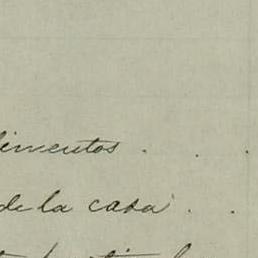 limentos . . .
de la casa . .